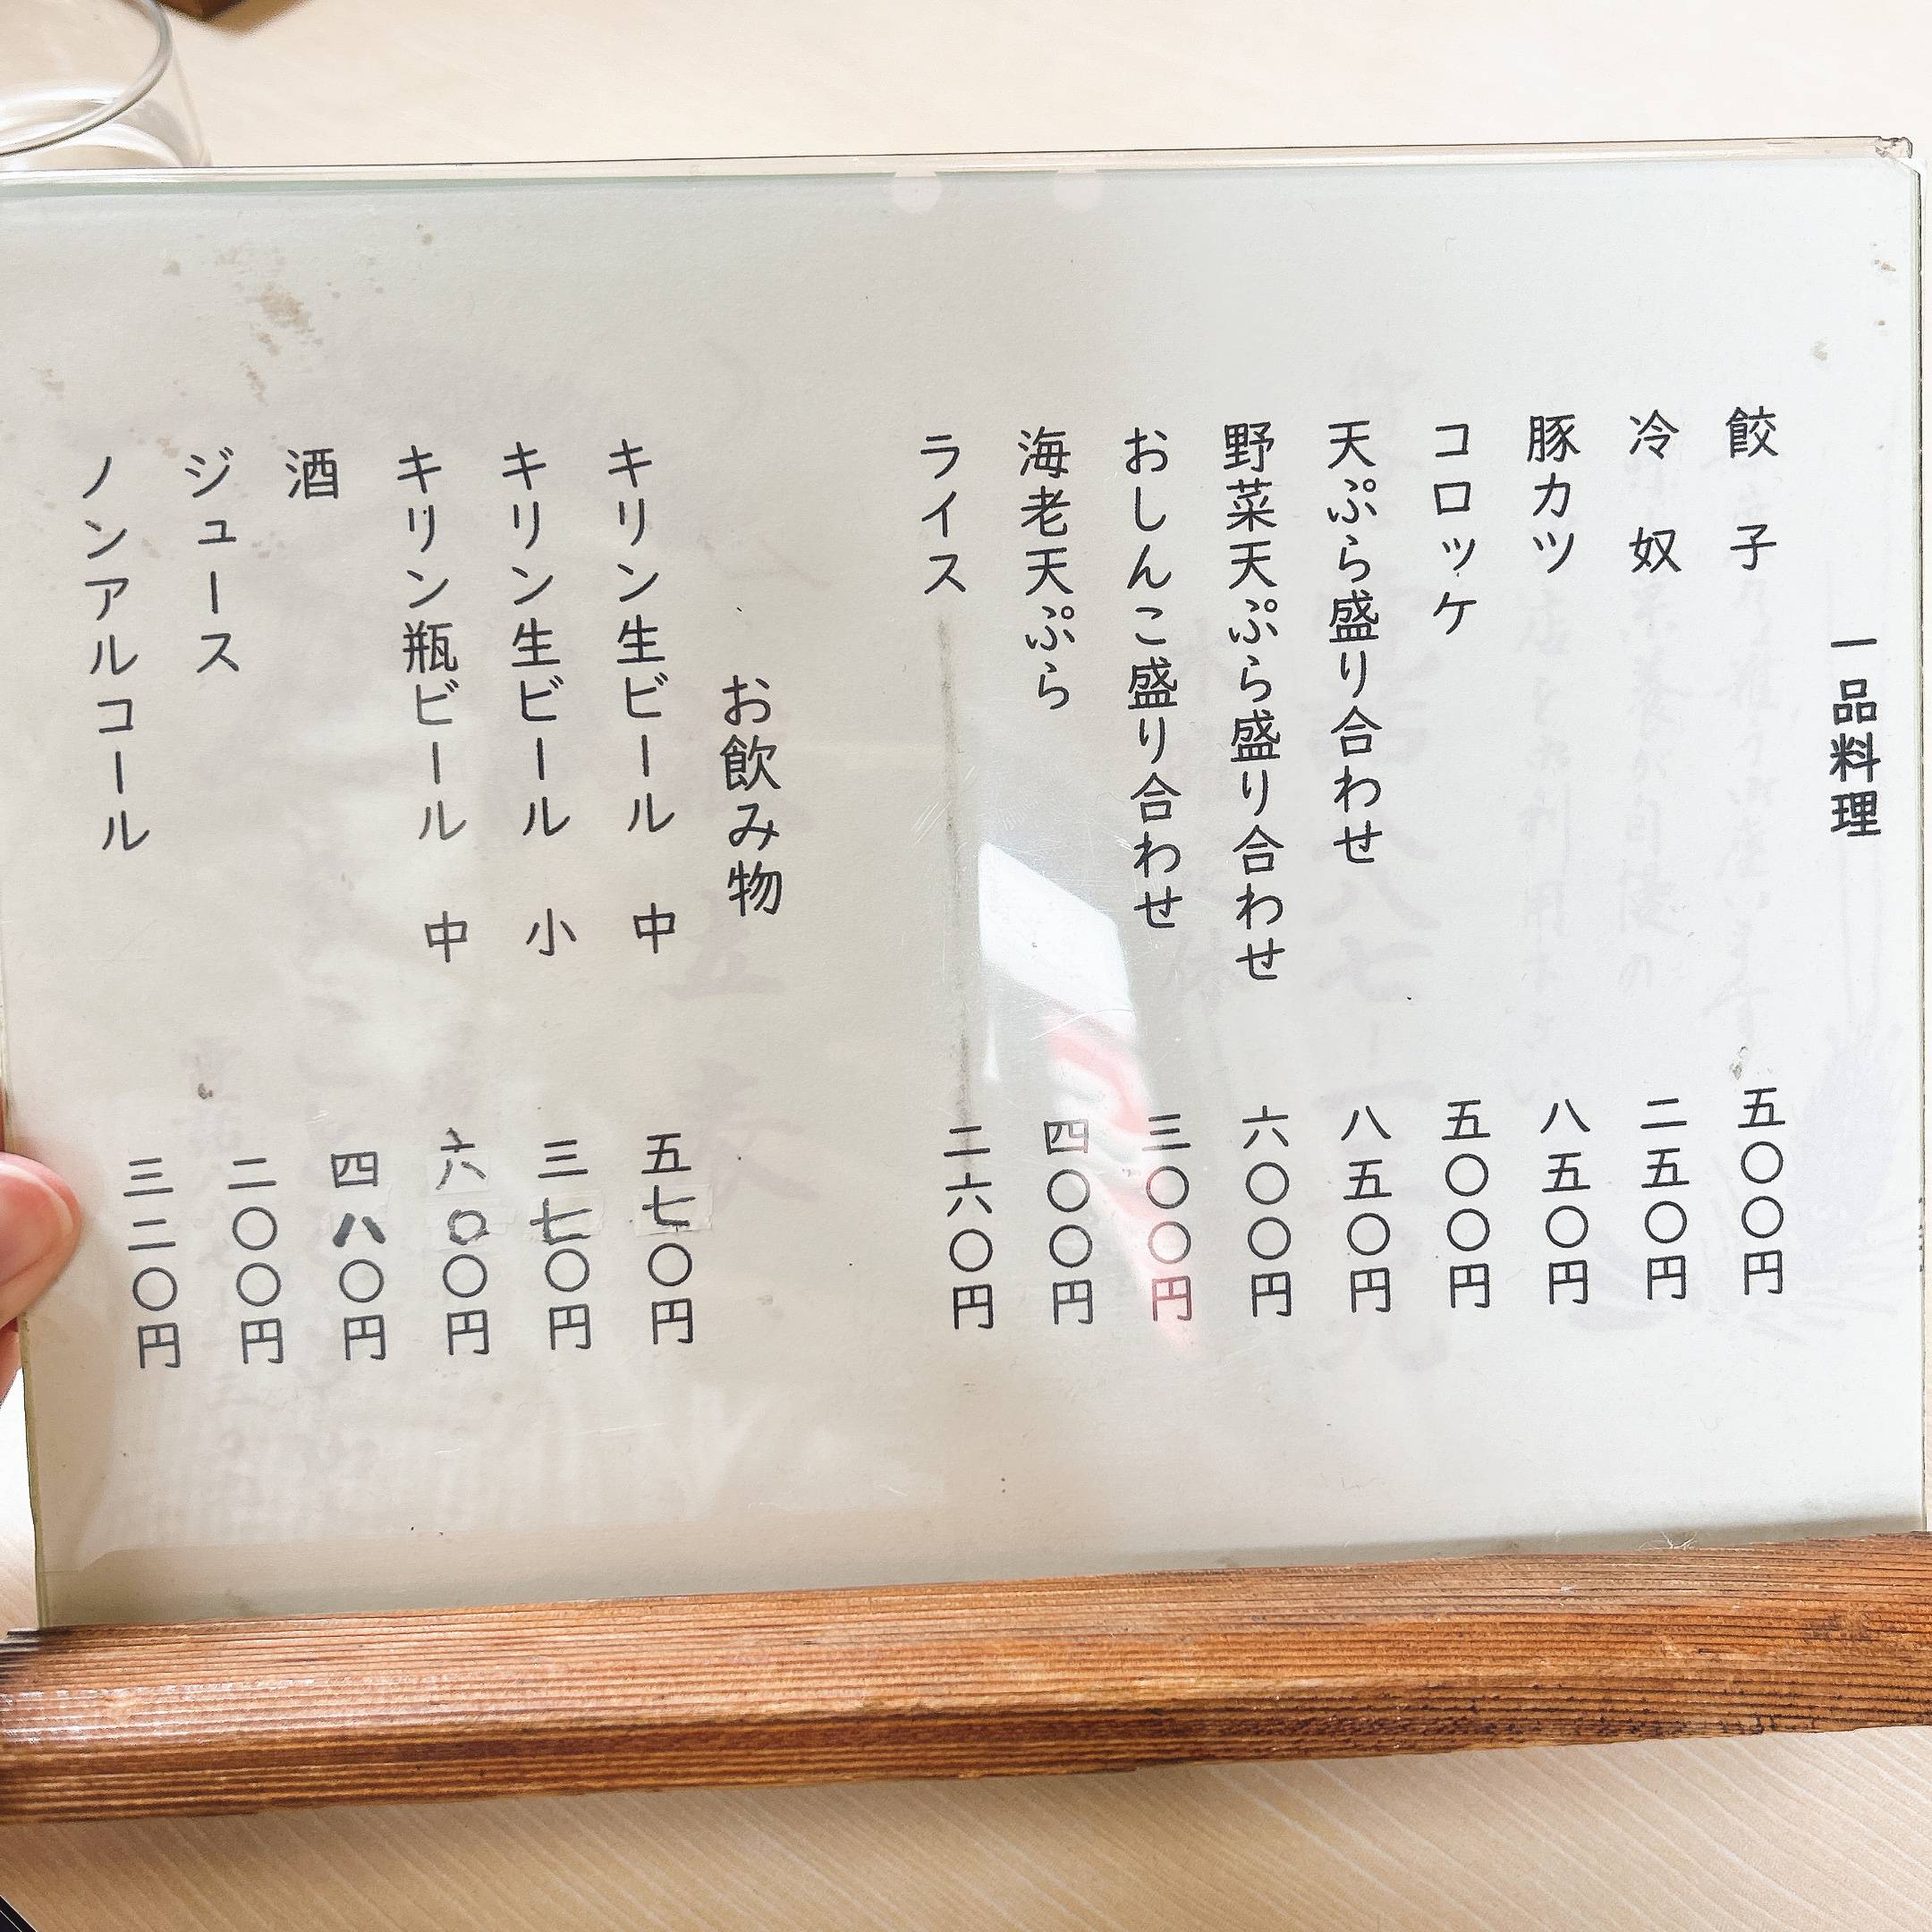 一品料理
餃子 五〇〇円
冷奴 二五〇円
豚カツ 八五〇円
コロッケ 五〇〇円
天ぷら盛り合わせ 八五〇円
野菜天ぷら盛り合わせ 六〇〇円
おしんこ盛り合わせ 三〇〇円
海老天ぷら 四〇〇円
ライス 二六〇円
お飲み物
キリン生ビール 中 五七〇円
キリン生ビール 小 三七〇円
キリン瓶ビール 中 六〇〇円
酒 四八〇円
ジュース 二〇〇円
ノンアルコール 三二〇円